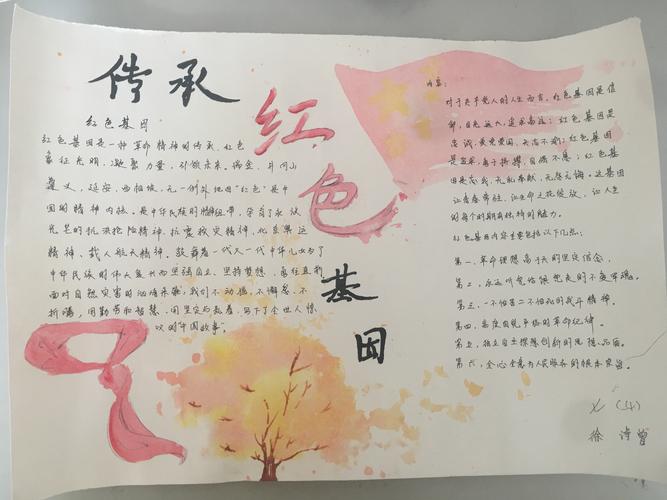 传承
红色
基因
红色基因
红色基因是一种革命精神的传承,红色
象征光明,凝聚力量,引领未来。瑞金、井冈山
遵义,延安,西柏坡,无一例外地因“红色”是中
国的精神内核。是中华民族的精神纽带,孕育了永
的抗洪抢险精神,抗震救灾精神,北京奥运
精神、载人航天精神。鼓舞着一代又一代中华儿女为了
中华民族的伟大复兴而坚强自立、坚持梦想,
面对自然灾害的汹涌来袭,我们不动摇,不懈怠、不
折腾,用勤劳和智慧,用坚定与执着,写下了全世人惊
叹的中国故事。
内容:
对于共产党人的人生而言,红色基因是信
仰,目色远大,追求高远;红色基因是
忠诚,爱党爱国,矢志不渝;红色基因
是坚卓,勇于拼搏,自强不息;红色基
因是忘我,无私奉献,无怨无悔。这基因
让青春常驻,让生命之花绽放,让人生
的每个时期有独特的魅力。
红色基因内容主要包括以下几点:
第一,革命理想高于天的坚定信念,
第二,永远听党话跟党走的不变军魂。
第三,一不怕苦二不怕死的战斗精神。
第四,高度自觉严格的革命纪律。
第五,独立自主探想创新的思想品质。
第六,全心全意为人民服务的根本宗旨。
七(4)
徐 诗曾